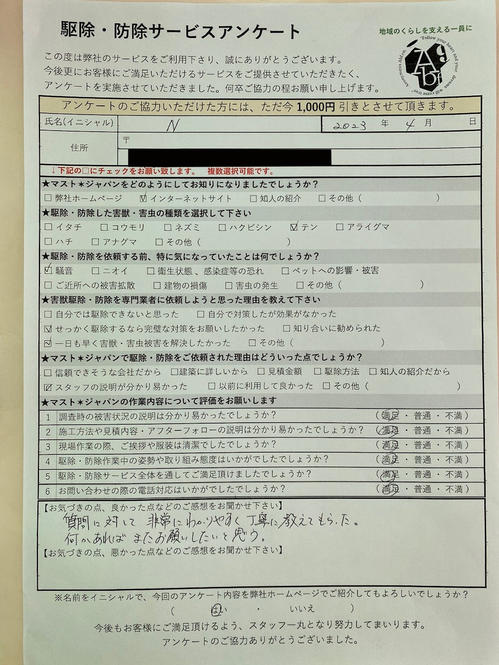 駆除・防除サービスアンケート
地域のくらしを支える一員に
この度は弊社のサービスをご利用下さり、誠にありがとうございます。
今後更にお客様にご満足いただけるサービスをご提供させていただきたく、
アンケートを実施させていただきました。何卒ご協力の程お願い申し上げます。
アンケートのご協力いただけた方には、ただ今1,000円引きとさせて頂きます。
氏名(イニシャル) N 2023 年 4 月 日
住所 〒
↓下記の□にチェックをお願い致します。 複数選択可能です。
★マスト＊ジャパンをどのようにしてお知りになりましたでしょうか？
□弊社ホームページ ☑インターネットサイト □知人の紹介 □その他（ ）
★駆除・防除した害獣・害虫の種類を選択して下さい
□イタチ □コウモリ □ネズミ □ハクビシン ☑テン □アライグマ
□ハチ □アナグマ □その他（ ）
★駆除・防除を依頼する前、特に気になっていたことは何でしょうか？
☑騒音 □ニオイ □衛生状態、感染症等の恐れ □ペットへの影響・被害
□ご近所への被害拡散 □建物の損傷 □害虫の発生 □その他（ ）
★害獣駆除・防除を専門業者に依頼しようと思った理由を教えて下さい
□自分では駆除できないと思った □自分で対策したが効果がなかった
☑せっかく駆除するなら完璧な対策をお願いしたかった □知り合いに勧められた
☑一日も早く害獣・害虫被害を解決したかった □その他（ ）
★マスト＊ジャパンで駆除・防除をご依頼された理由はどういった点でしょうか？
□信頼できそうな会社だから □建築に詳しいから □見積金額 □駆除方法 □知人の紹介だから
☑スタッフの説明が分かり易かった □以前に利用して良かった □その他（ ）
★マスト＊ジャパンの作業内容について評価をお願いします
1 調査時の被害状況の説明は分かり易かったでしょうか？ （満足・普通・不満）
2 施工方法や見積内容・アフターフォローの説明は分かり易かったでしょうか？ （満足・普通・不満）
3 現場作業の際、ご挨拶や服装は清潔でしたでしょうか？ （満足・普通・不満）
4 駆除・防除作業中の姿勢や取り組み態度はいかがでしたでしょうか？ （満足・普通・不満）
5 駆除・防除サービス全体を通してご満足頂けましたでしょうか？ （満足・普通・不満）
6 お問い合わせの際の電話対応はいかがでしたでしょうか？ （満足・普通・不満）
【お気づきの点、良かった点などのご感想をお聞かせ下さい】
質問に対して 非常にわかりやすく丁寧に教えてもらった。
何かあればまたお願いしたいと思う。
【お気づきの点、悪かった点などのご感想をお聞かせ下さい】
※名前をイニシャルで、今回のアンケート内容を弊社ホームページでご紹介してもよろしいでしょうか？
（ はい ・ いいえ ）
今後もお客様にご満足頂けるよう、スタッフ一丸となり努力してまいります。
アンケートのご協力ありがとうございました。